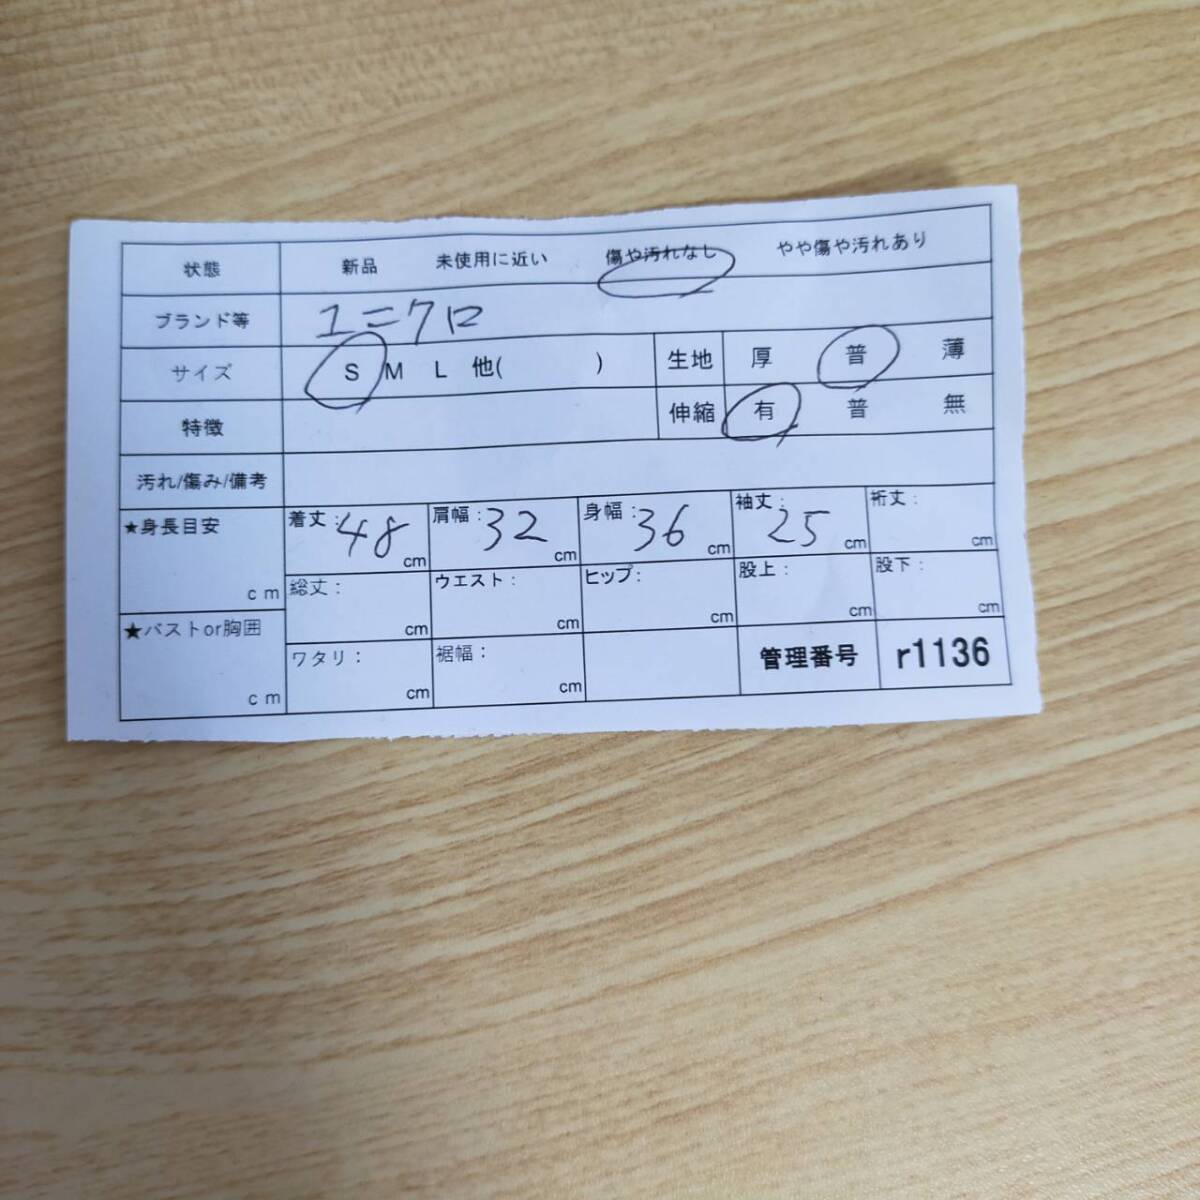 状態 新品 未使用に近い 傷や汚れなし やや傷や汚れあり
ブランド等 ユニクロ
サイズ S M L 他( ) 生地 厚 普 薄
特徴 伸縮 有 普 無
汚れ/傷み/備考
★身長目安 cm
着丈:48cm 肩幅:32cm 身幅:36cm 袖丈:25cm 裄丈:cm
総丈:cm ウエスト:cm ヒップ:cm 股上:cm 股下:cm
★バストor胸囲 cm
ワタリ:cm 裾幅:cm 管理番号 r1136